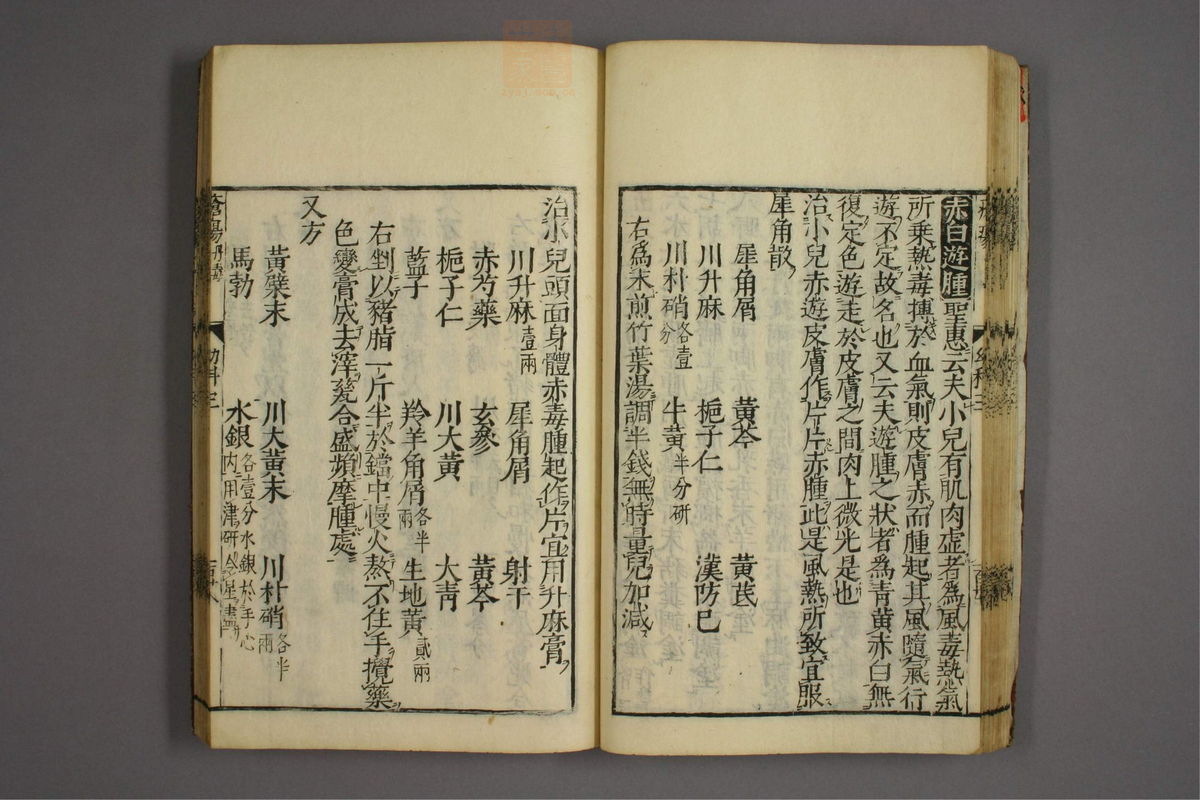 赤白遊腫聖惠云夫小兒有肌肉虛者為風毒熱氣
所乘熱毒搏於血氣則皮膚赤而腫起其風隨氣行
遊不定故名也又云夫遊腫之狀者為青黃赤白無
復定色遊走於皮膚之間肉上微光是也
治小兒赤遊皮膚作片片赤腫此是風熱所致宜服
犀角散
犀角屑 黃芩 黃芪
川升麻 梔子仁 漢防巳
川朴硝各壹分 牛黃半分研
右爲末煎竹葉湯調半錢無時量兒加減
治小兒頭面身體赤毒腫起作片宜用升麻膏
川升麻壹兩 犀角屑 射干
赤芍藥 玄參 黃芩
梔子仁 川大黃 大青
藍子 羚羊角屑各半兩 生地黃貳兩
右剉以豬脂一斤半於鐺中慢火熬不住手攪藥
色變膏成去滓瓷合盛頻摩腫處
又方
黃蘗末 川大黃末 川朴硝各半兩
馬勃 水銀各壹分水銀於手心內用津研令星盡
幼科三